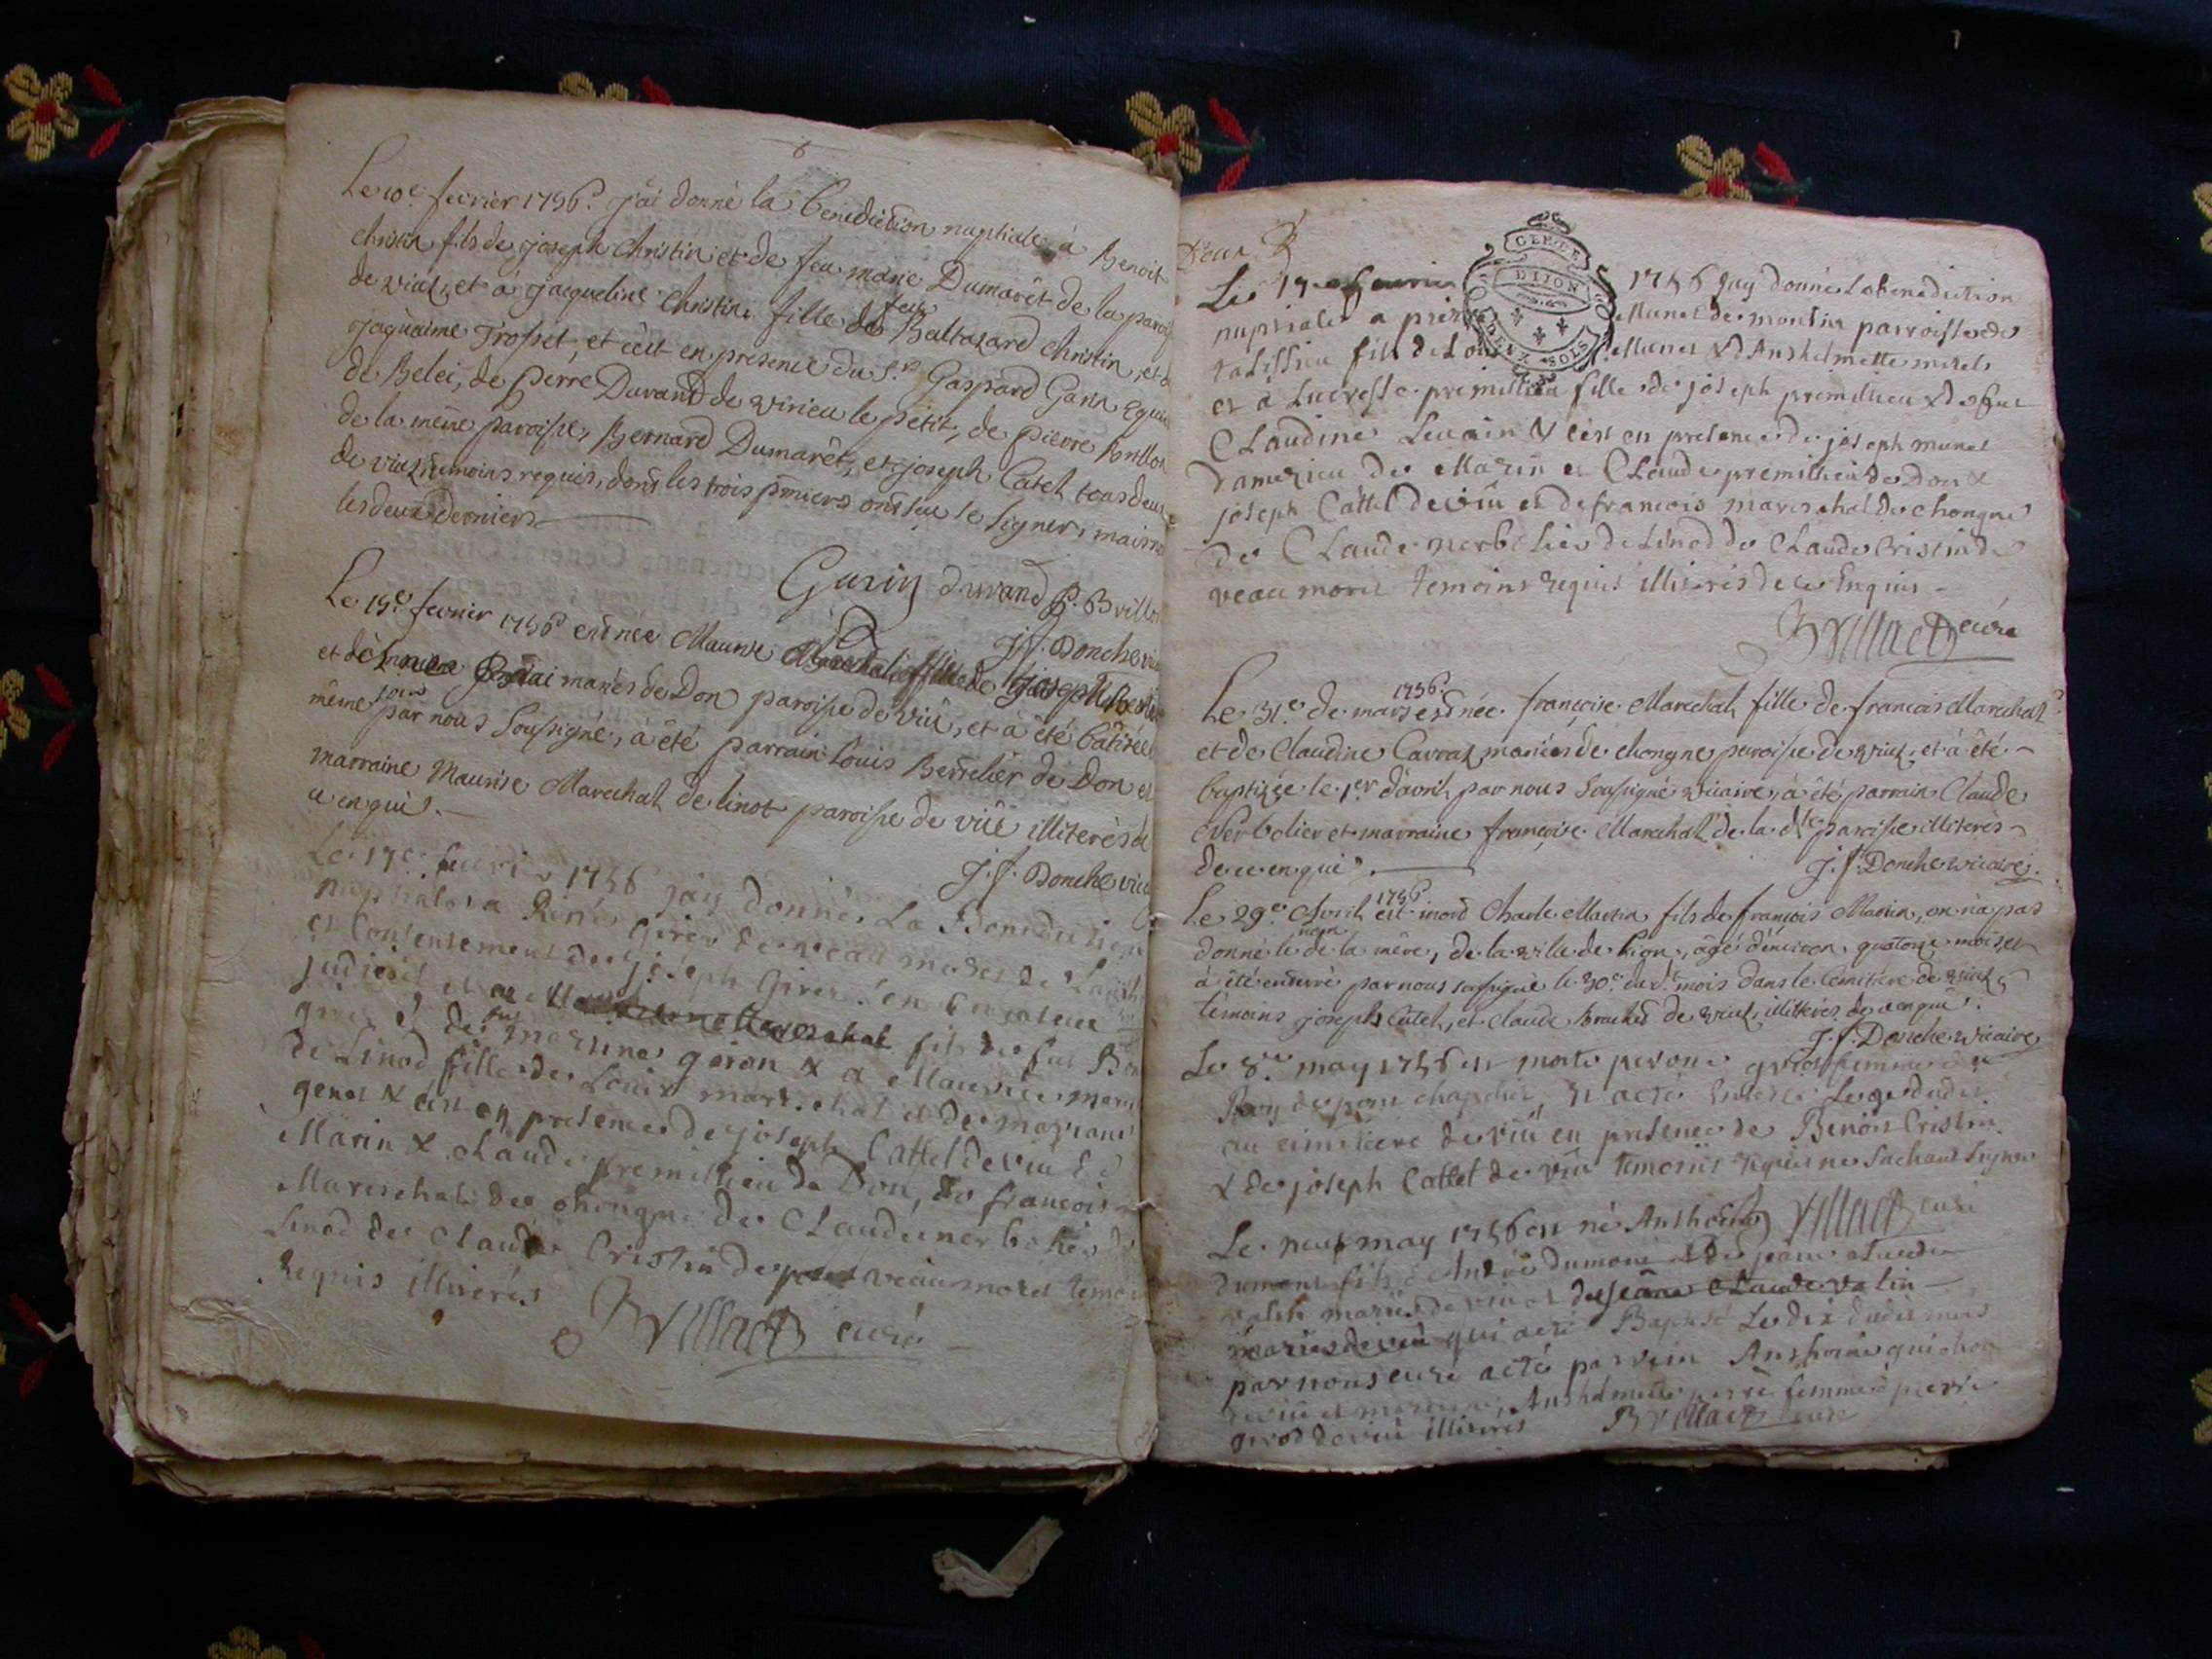 Le 10e fevrier 1756. j'ai donné la benediction nuptiale à Benoit
christin fils de joseph christin et de feu marie Dumarêt de la paroi
de viuz, et à jacqueline christin fille de feu Baltazard christin, et d
jaquême Trosset, et c'est en presence du Sr. Gaspard Garin Equie
de Belei, de pierre Durand de virieu le petit, de pierre Brillon
de la même paroisse, Bernard Dumarêt, et joseph Catel tous deux
de viuz temoins requis, dont les trois pmiers ont seu le signer, mais no
les deux derniers
Garin durand P. Brillon
J. f. Donche vic
Le 15e. fevrier 1756 est née Maurise fille de joseph
et de mariés de Don paroisse de viû, et à été batisée
même jour par nous soussigné, à été parrain Louis Berrelier de Don et
marraine Maurise Marechal de linot paroisse de viû illiterés de
ce enquis.
J. f. Donche vica
Le 17e. feuvrier 1756 jay donné La Benediction
nuptiales a Pierre Girer de veau mores de
et Consentement de joseph Girer en curateur
judiciel et fils de feu
girer & de feu marine geron & a Maurise mare
de Linod fille de Louis mareschal et de mariane
genet & c'est en presence de joseph Cattel de viû
Marin & claude premillieu de Don, de francois
Mareschal de chongne de Claude nerbolier de
Linod de claude Cristin de veaumores temo
Requis illiterés
Brillat curé
Deux
Le 17e feuvrier 1756 jay donné La benediction
GEN. DE
DIJON
DEUX SOLS
nuptiales a pierre Munet de montin parroisse de
talissieu fils de Louis Munet & d'Anthelmette
et à Lucresse premillieu fille de joseph premillieu & de feue
Claudine Leuain & c'est en presence de joseph munet
d'amezieu de Marin et Claude premillieu de don &
joseph Cattel de viû et de francois mareschal de chongne
de Claude nerbolier de Linod de Claude Cristin de
veaumores temoins requis illiterés de ce Enquis
Brillat curé
Le 31e. de mars 1756. est née françoise Marechal fille de francois Marechal
et de Claudine Carraz mariés de chongne paroisse de viuz, et à été
baptizée le 1er d'avril par nous soussigné vicaire, à été parrain Claude
Nerbolier et marraine françoise Marechal de la dte paroisse illiterés
de ce enquis.
J. f. Donche vicaire.
Le 29e Avril 1756 est mord Charle Martin fils de françois Martin, on n'a pas
donné le nom de la mère, de la ville de Lion, âgé d'environ quatorze mois et
à été enterré par nous soussigné le 30e. du dt mois dans le Cemitiere de viuz
témoins joseph Catel, et claude Brachet de viuz illitérés de ce enquis.
J. f. Donche vicaire
Le 8me may 1756 est morte perone gros femme de
Roy de pont chapelier, et a eté enterée Le 9e dudit
au cimetiere de viû en presence de Benoit Cristin
& de joseph Cattel de viû temoins requis ne sachant signer
Brillat curé
Le neuf may 1756 est né Anthoine
Dumont fils d'André dumont & de jeanne claude
valin mariés de viû et de jeane Claude valin
mariés de viû qui a eté Baptisé Le dix dudit mois
par nous curé a eté parrein Anthoine guichon
de viû et marreine Anthelmette femme à pierre
girod de viû illiterés Brillat curé